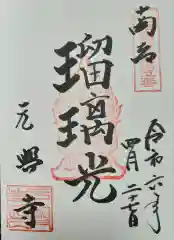 南都
令和六年
四月二十七日
瑠璃光
元興寺